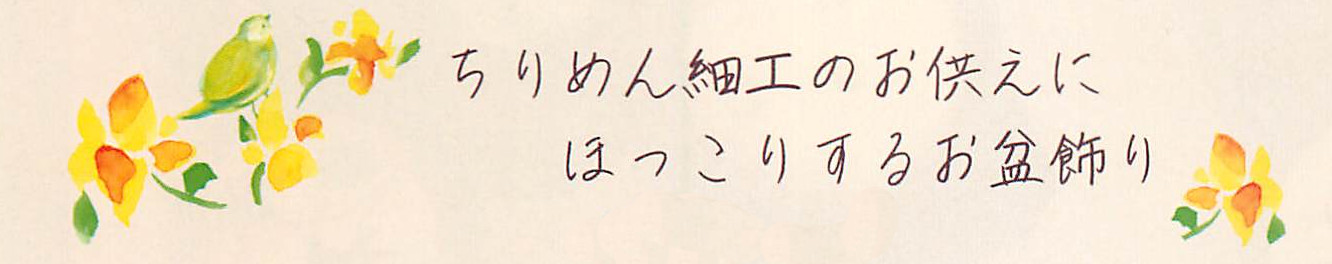 ちりめん細工のお供えに
ほっこりするお盆飾り